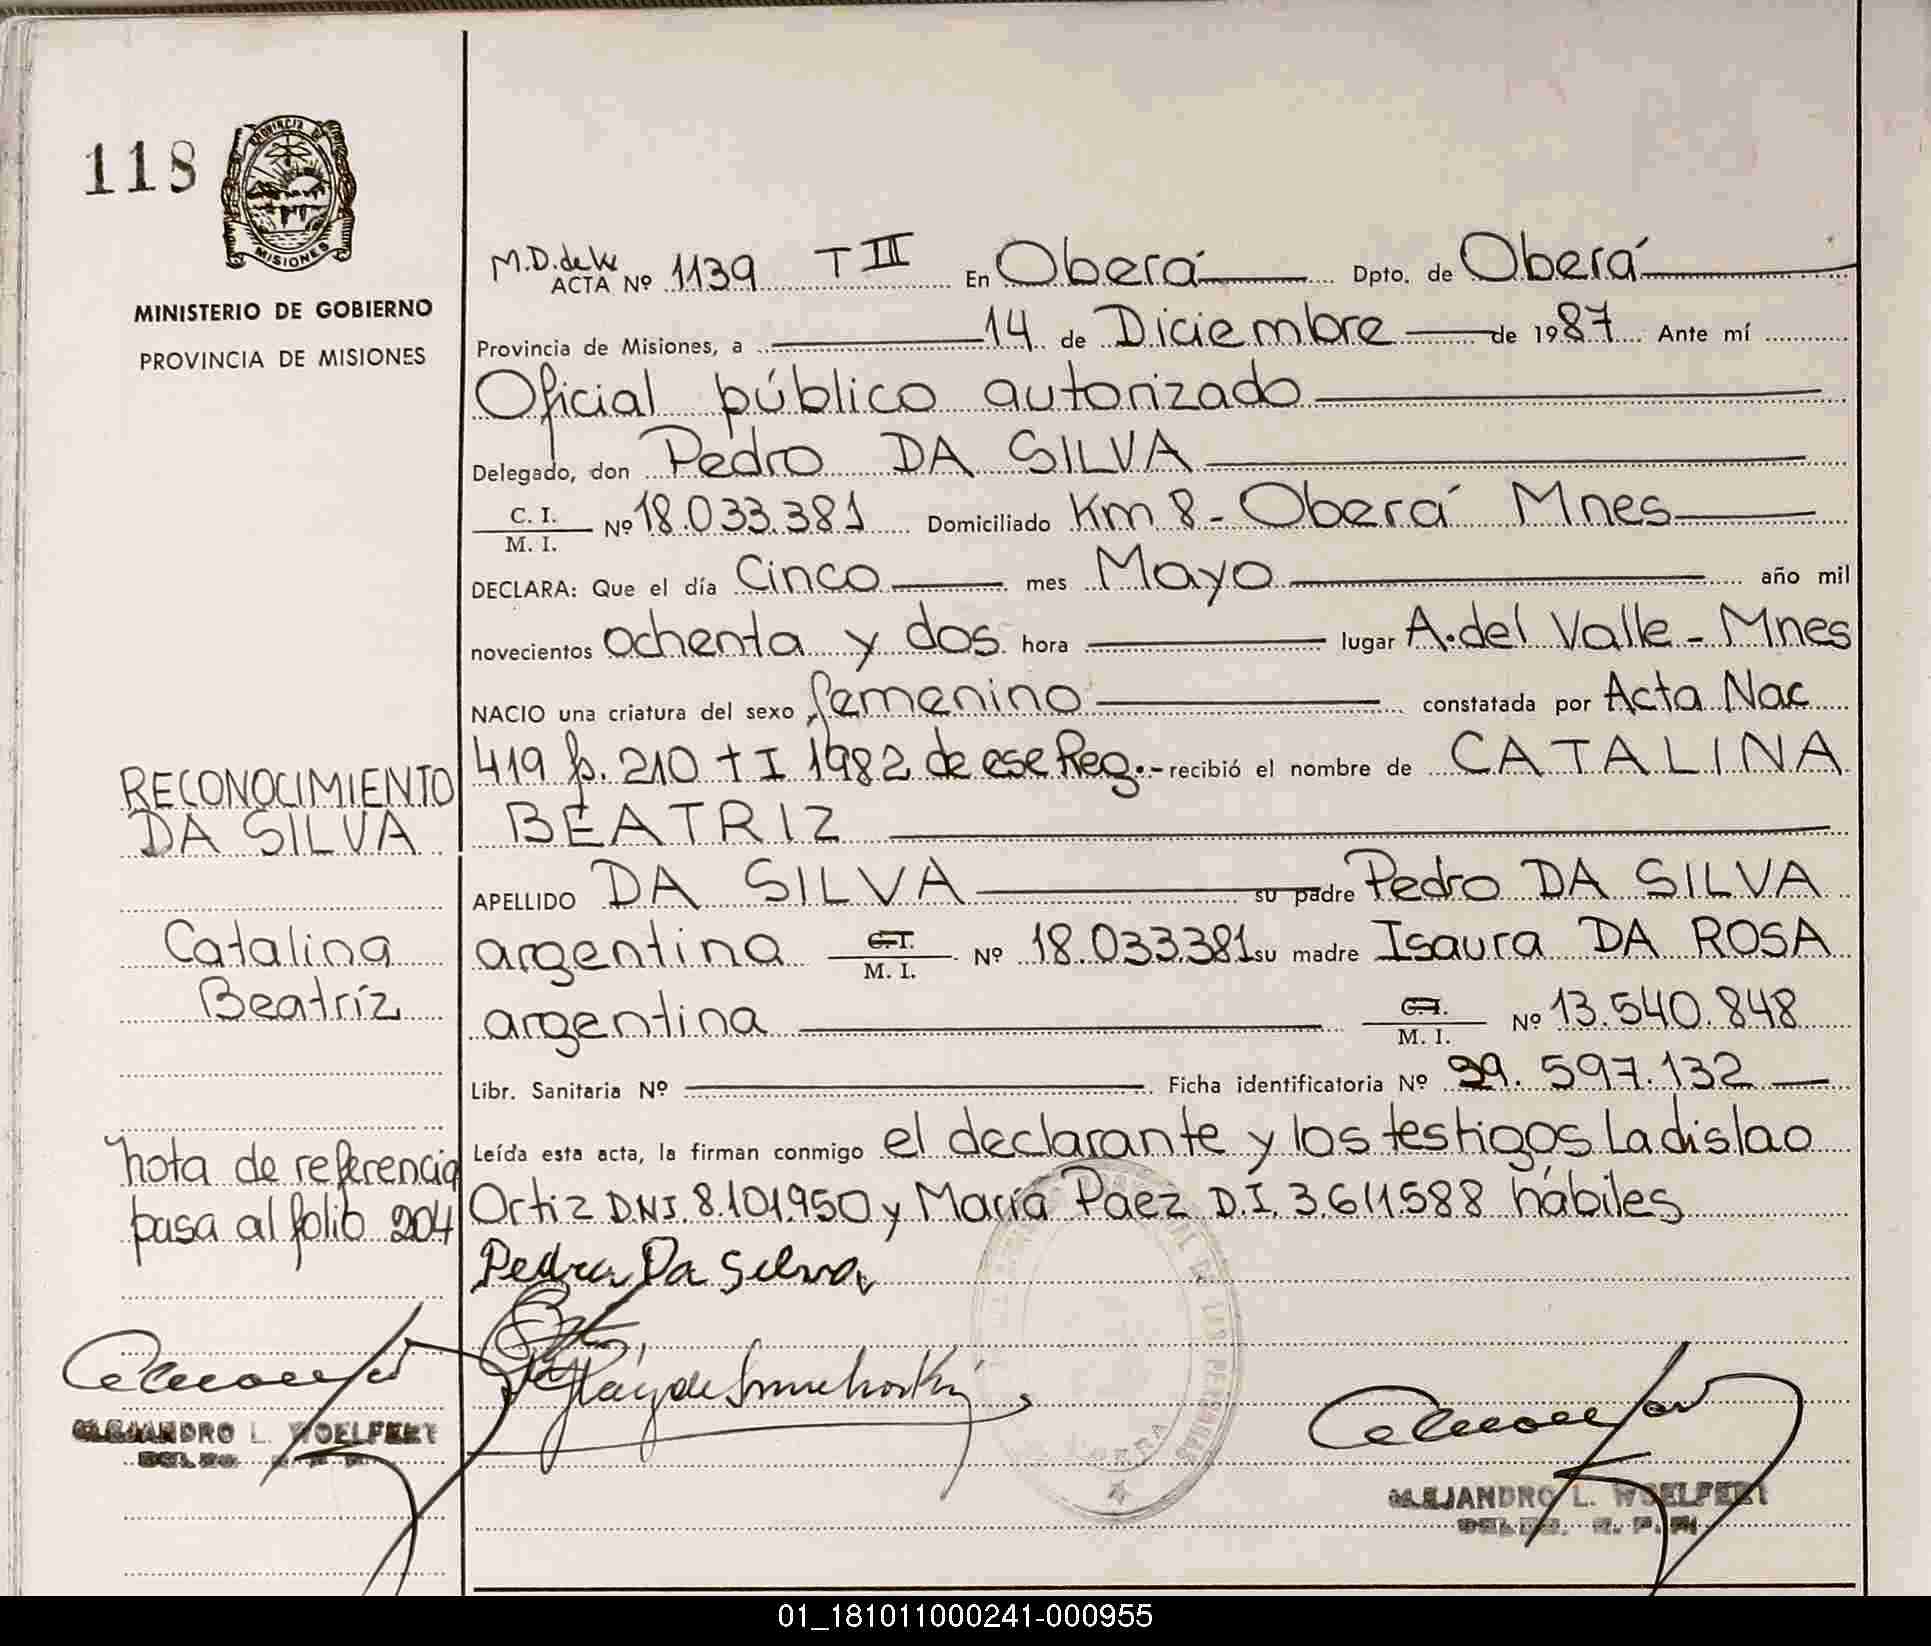 118
PROVINCIA DE
MISIONES
MINISTERIO DE GOBIERNO
PROVINCIA DE MISIONES
M.D. de
ACTA Nº 1139 T III En Oberá Dpto. de Oberá
Provincia de Misiones, a 14 de Diciembre de 1987 Ante mí
Oficial público autorizado
Delegado, don Pedro DA SILVA
C. I.
M. I. Nº 18.033.381 Domiciliado Km 8 - Oberá Mnes
DECLARA: Que el día Cinco mes Mayo año mil
novecientos ochenta y dos hora lugar A. del Valle - Mnes
NACIO una criatura del sexo femenino constatada por Acta Nac
419 fº. 210 t I 1982 de ese Reg.- recibió el nombre de CATALINA
BEATRIZ
APELLIDO DA SILVA su padre Pedro DA SILVA
argentino C.I.
M. I. Nº 18.033.381 su madre Isaura DA ROSA
argentina C.I.
M. I. Nº 13.540.848
Libr. Sanitaria Nº Ficha identificatoria Nº 29.597.132
Leída esta acta, la firman conmigo el declarante y los testigos Ladislao
Ortiz DNI. 8.101.950 y María Paez D.I. 3.611.588 hábiles
Pedro Da Silva
RECONOCIMIENTO
DA SILVA
Catalina
Beatríz
nota de referencia
pasa al folio 204
ALEJANDRO L. WOELFERT
ALEJANDRO L. WOELFERT
DE LAS PERSONAS
01_181011000241-000955